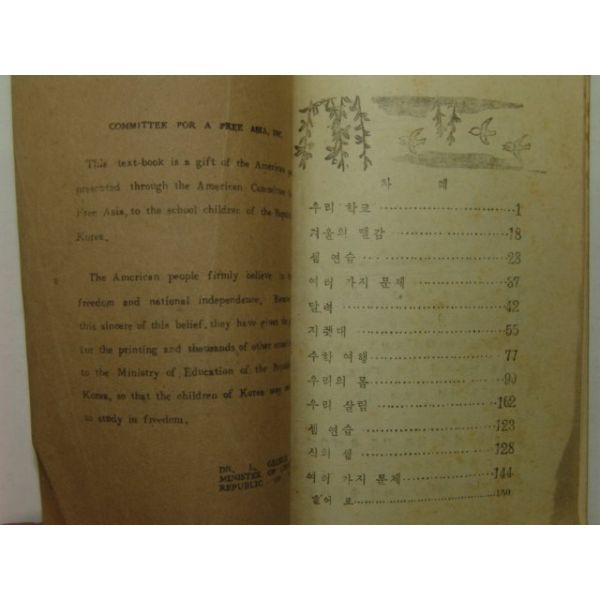 COMMITTEE FOR A FREE ASIA, INC.
This text-book is a gift of the American
presented through the American Committee
Free Asia, to the school children of the
Korea.
The American people firmly believe in
freedom and national independence.
this sincere of this belief, they have given
for the printing and thousands of other
to the Ministry of Education of the
Korea, so that the children of Korea may
to study in freedom.
DR. L. GEORGE
MINISTER OF
REPUBLIC OF
차 례
우리 학교 1
겨울의 땔감 18
셈 연습 23
여러 가지 문제 37
달력 42
지렛대 55
수학 여행 77
우리의 몸 90
우리 살림 102
셈 연습 123
신의 셈 128
여러 가지 문제 144
150